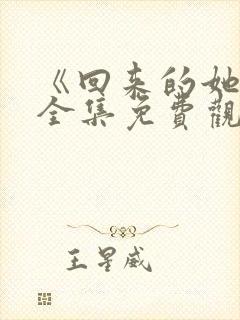 《回来的她
全集免費觀
王星威